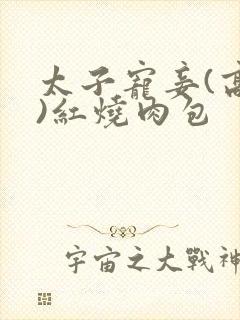 太子寵妾(高
)紅燒肉包
宇宙之大戰神